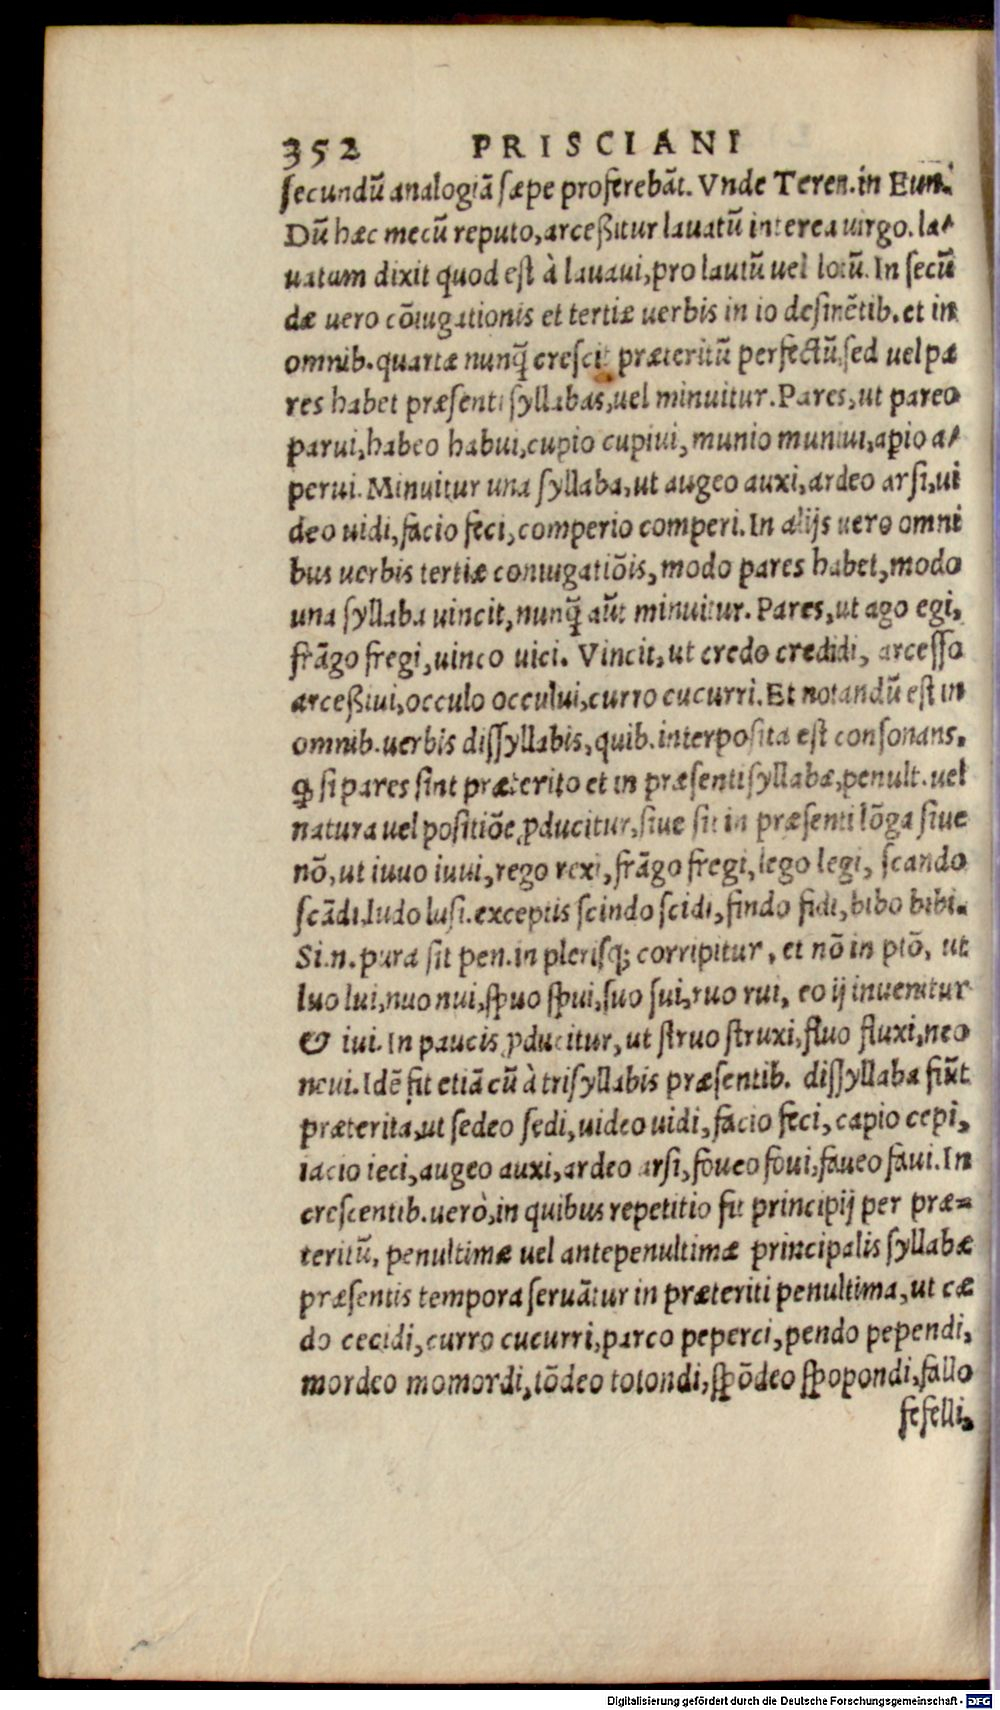 352 PRISCIANI
secundũ analogiã sæpe proferebãt. Vnde Teren. in Eun.
Dũ hæc mecũ reputo, arceßitur lauatũ interea uirgo. la-
uatum dixit quod est à lauaui, pro lautũ uel lotũ. In secũ
dæ uero cõiugationis et tertiæ uerbis in io desinẽtib. et in
omnib. quartæ nunq̃ crescit præteritũ perfectũ, sed uel pa
res habet præsenti syllabas, uel minuitur. Pares, ut pareo
parui, habeo habui, cupio cupiui, munio muniui, aperio a-
perui. Minuitur una syllaba, ut augeo auxi, ardeo arsi, ui
deo uidi, facio feci, comperio comperi. In alijs uero omni
bus uerbis tertiæ coniugatiõis, modo pares habet, modo
una syllaba uincit, nunq̃ aũt minuitur. Pares, ut ago egi,
frãgo fregi, uinco uici. Vincit, ut credo credidi, arcesso
arceßiui, occulo occului, curro cucurri. Et notandũ est in
omnib. uerbis dissyllabis, quib. interposita est consonans,
ꝙ si pares sint præterito et in præsenti syllabæ, penult. uel
natura uel positiõe ꝓducitur, siue sit in præsenti lõga siue
nõ, ut iuuo iuui, rego rexi, frãgo fregi, lego legi, scando
scãdi, ludo lusi. exceptis scindo scidi, findo fidi, bibo bibi.
Si.n. pura sit pen. in plerisq; corripitur, et nõ in ptõ, ut
luo lui, nuo nui, spuo spui, suo sui, ruo rui, eo ij inuenitur
& iui. In paucis ꝓducitur, ut struo struxi, fluo fluxi, neo
neui. Idẽ fit etiã cũ à trisyllabis præsentib. dissyllaba fiũt
præterita, ut sedeo sedi, uideo uidi, facio feci, capio cepi,
iacio ieci, augeo auxi, ardeo arsi, foueo foui, faueo faui. In
crescentib. uerò, in quibus repetitio fit principij per præ-
teritũ, penultimæ uel antepenultimæ principalis syllabæ
præsentis tempora seruãtur in præteriti penultima, ut cæ
do cecidi, curro cucurri, parco peperci, pendo pependi,
mordeo momordi, tõdeo totondi, spõdeo spopondi, fallo
fefelli,
Digitalisierung gefördert durch die Deutsche Forschungsgemeinschaft - DFG